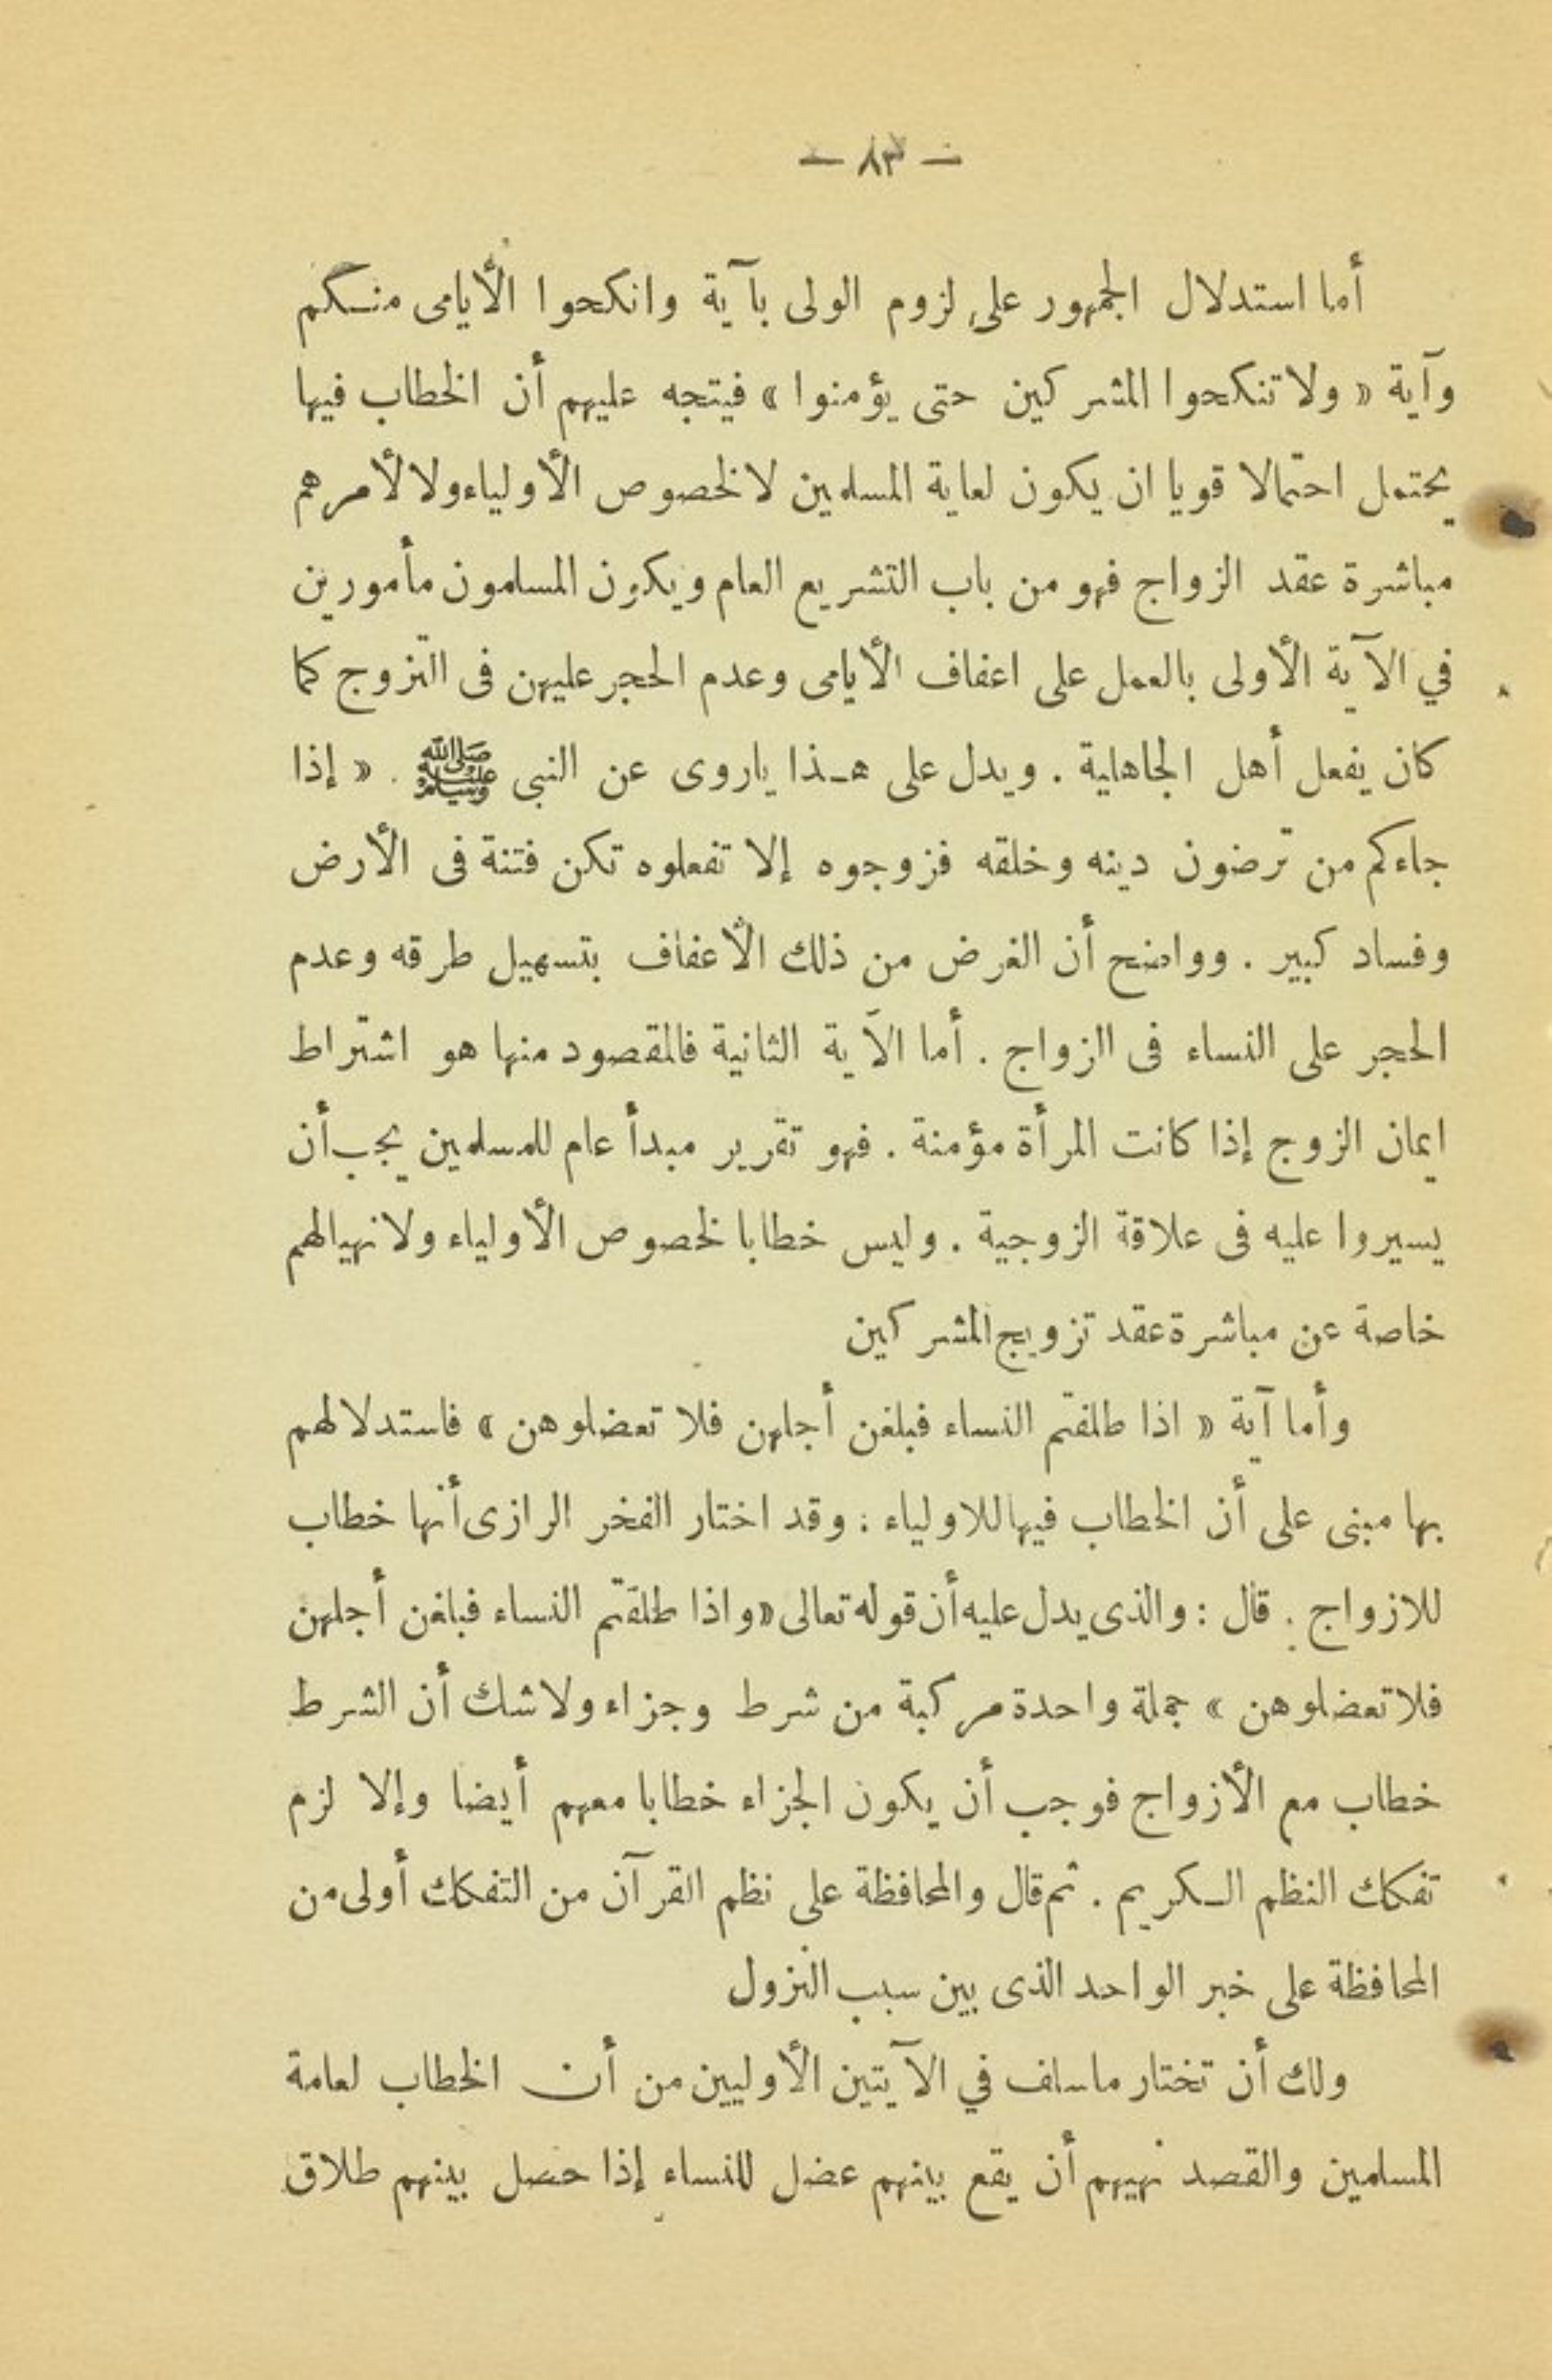 — ٨٣ —
أما استدلال الجمهور على لزوم الولى بآية وانكحوا الأيامى منكم
وآية « ولا تنكحوا المشركين حتى يؤمنوا » فيتجه عليهم أن الخطاب فيها
يحتمل احتمالا قويا ان يكون لعاية المسلمين لا لخصوص الأولياء ولا لأمرهم
مباشرة عقد الزواج فهو من باب التشريع العام ويكون المسلمون مأمورين
في الآية الأولى بالعمل على اعفاف الأيامى وعدم الحجر عليهن فى التزوج كما
كان يفعل أهل الجاهلية . ويدل على هذا ياروى عن النبى ﷺ . « إذا
جاءكم من ترضون دينه وخلقه فزوجوه إلا تفعلوه تكن فتنة فى الأرض
وفساد كبير . وواضح أن الغرض من ذلك الأعفاف بتسهيل طرقه وعدم
الحجر على النساء فى الزواج . أما الآية الثانية فالمقصود منها هو اشتراط
ايمان الزوج إذا كانت المرأة مؤمنة . فهو تقرير مبدأ عام للمسلمين يجب أن
يسيروا عليه فى علاقة الزوجية . وليس خطابا لخصوص الأولياء ولا نهيا لهم
خاصة عن مباشرة عقد تزويج المشركين
وأما آية « اذا طلقتم النساء فبلغن أجلهن فلا تعضلوهن » فاستدلالهم
بها مبنى على أن الخطاب فيها للاولياء : وقد اختار الفخر الرازى أنها خطاب
للازواج . قال : والذى يدل عليه أن قوله تعالى « واذا طلقتم النساء فبلغن أجلهن
فلا تعضلوهن » جملة واحدة مركبة من شرط وجزاء ولا شك أن الشرط
خطاب مع الأزواج فوجب أن يكون الجزاء خطابا معهم أيضا وإلا لزم
تفكك النظم الكريم . ثم قال والمحافظة على نظم القرآن من التفكك أولى من
المحافظة على خبر الواحد الذى بين سبب النزول
ولك أن تختار ما سلف في الآيتين الأوليين من أن الخطاب لعامة
المسلمين والقصد نهيهم أن يقع بينهم عضل للنساء إذا حصل بينهم طلاق